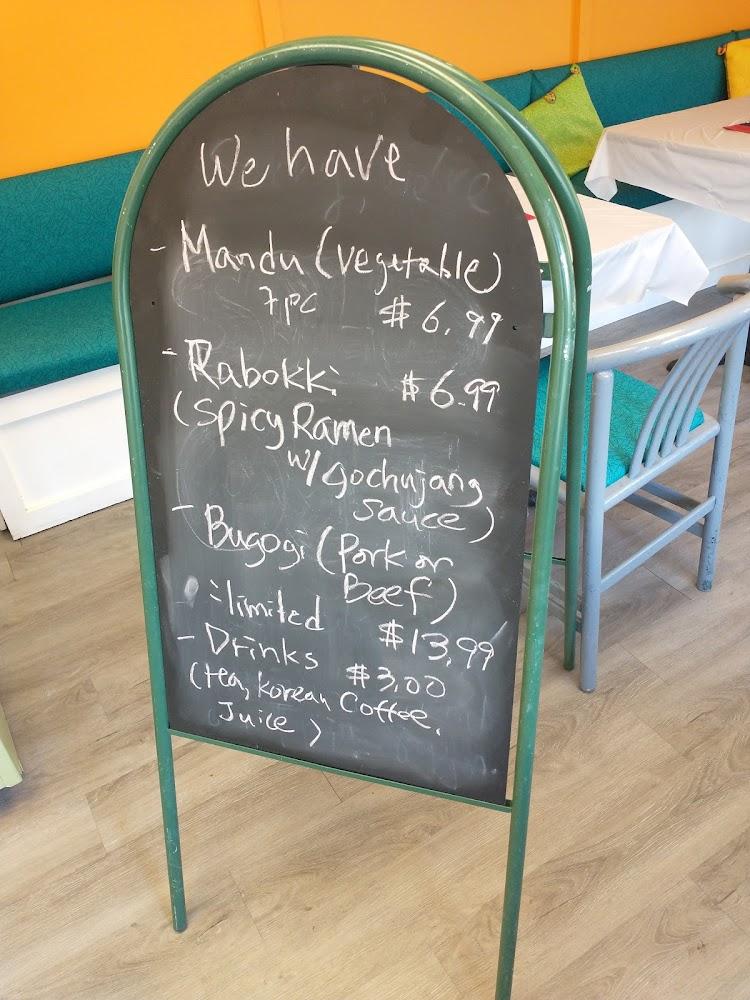 We have
- Mandu (vegetable)
7pc $6.99
- Rabokki $6.99
(Spicy Ramen
w/ Gochujang
Sauce)
- Bugogi (Pork or
Beef)
: limited $13.99
- Drinks $3.00
(tea, Korean Coffee,
Juice)